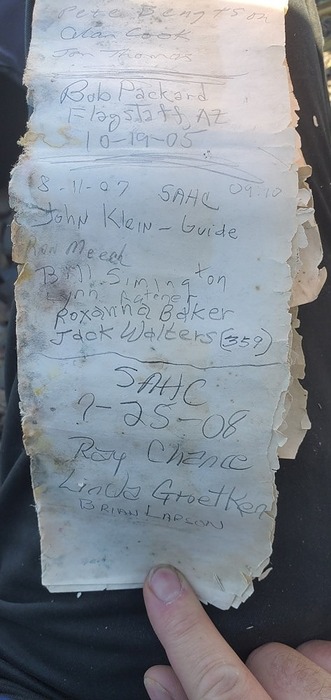 Pete Bengtson
Alan Cook
Jon Thomas
Bob Packard
Flagstaff, AZ
10-19-05
8-11-07 SAHC 09:10
John Klein - Guide
Ron Meech
Bill Simington
Lynn
Roxanna Baker
Jack Walters (359)
SAHC
?-25-08
Ray Chance
Linda Groetken
BRIAN LARSON